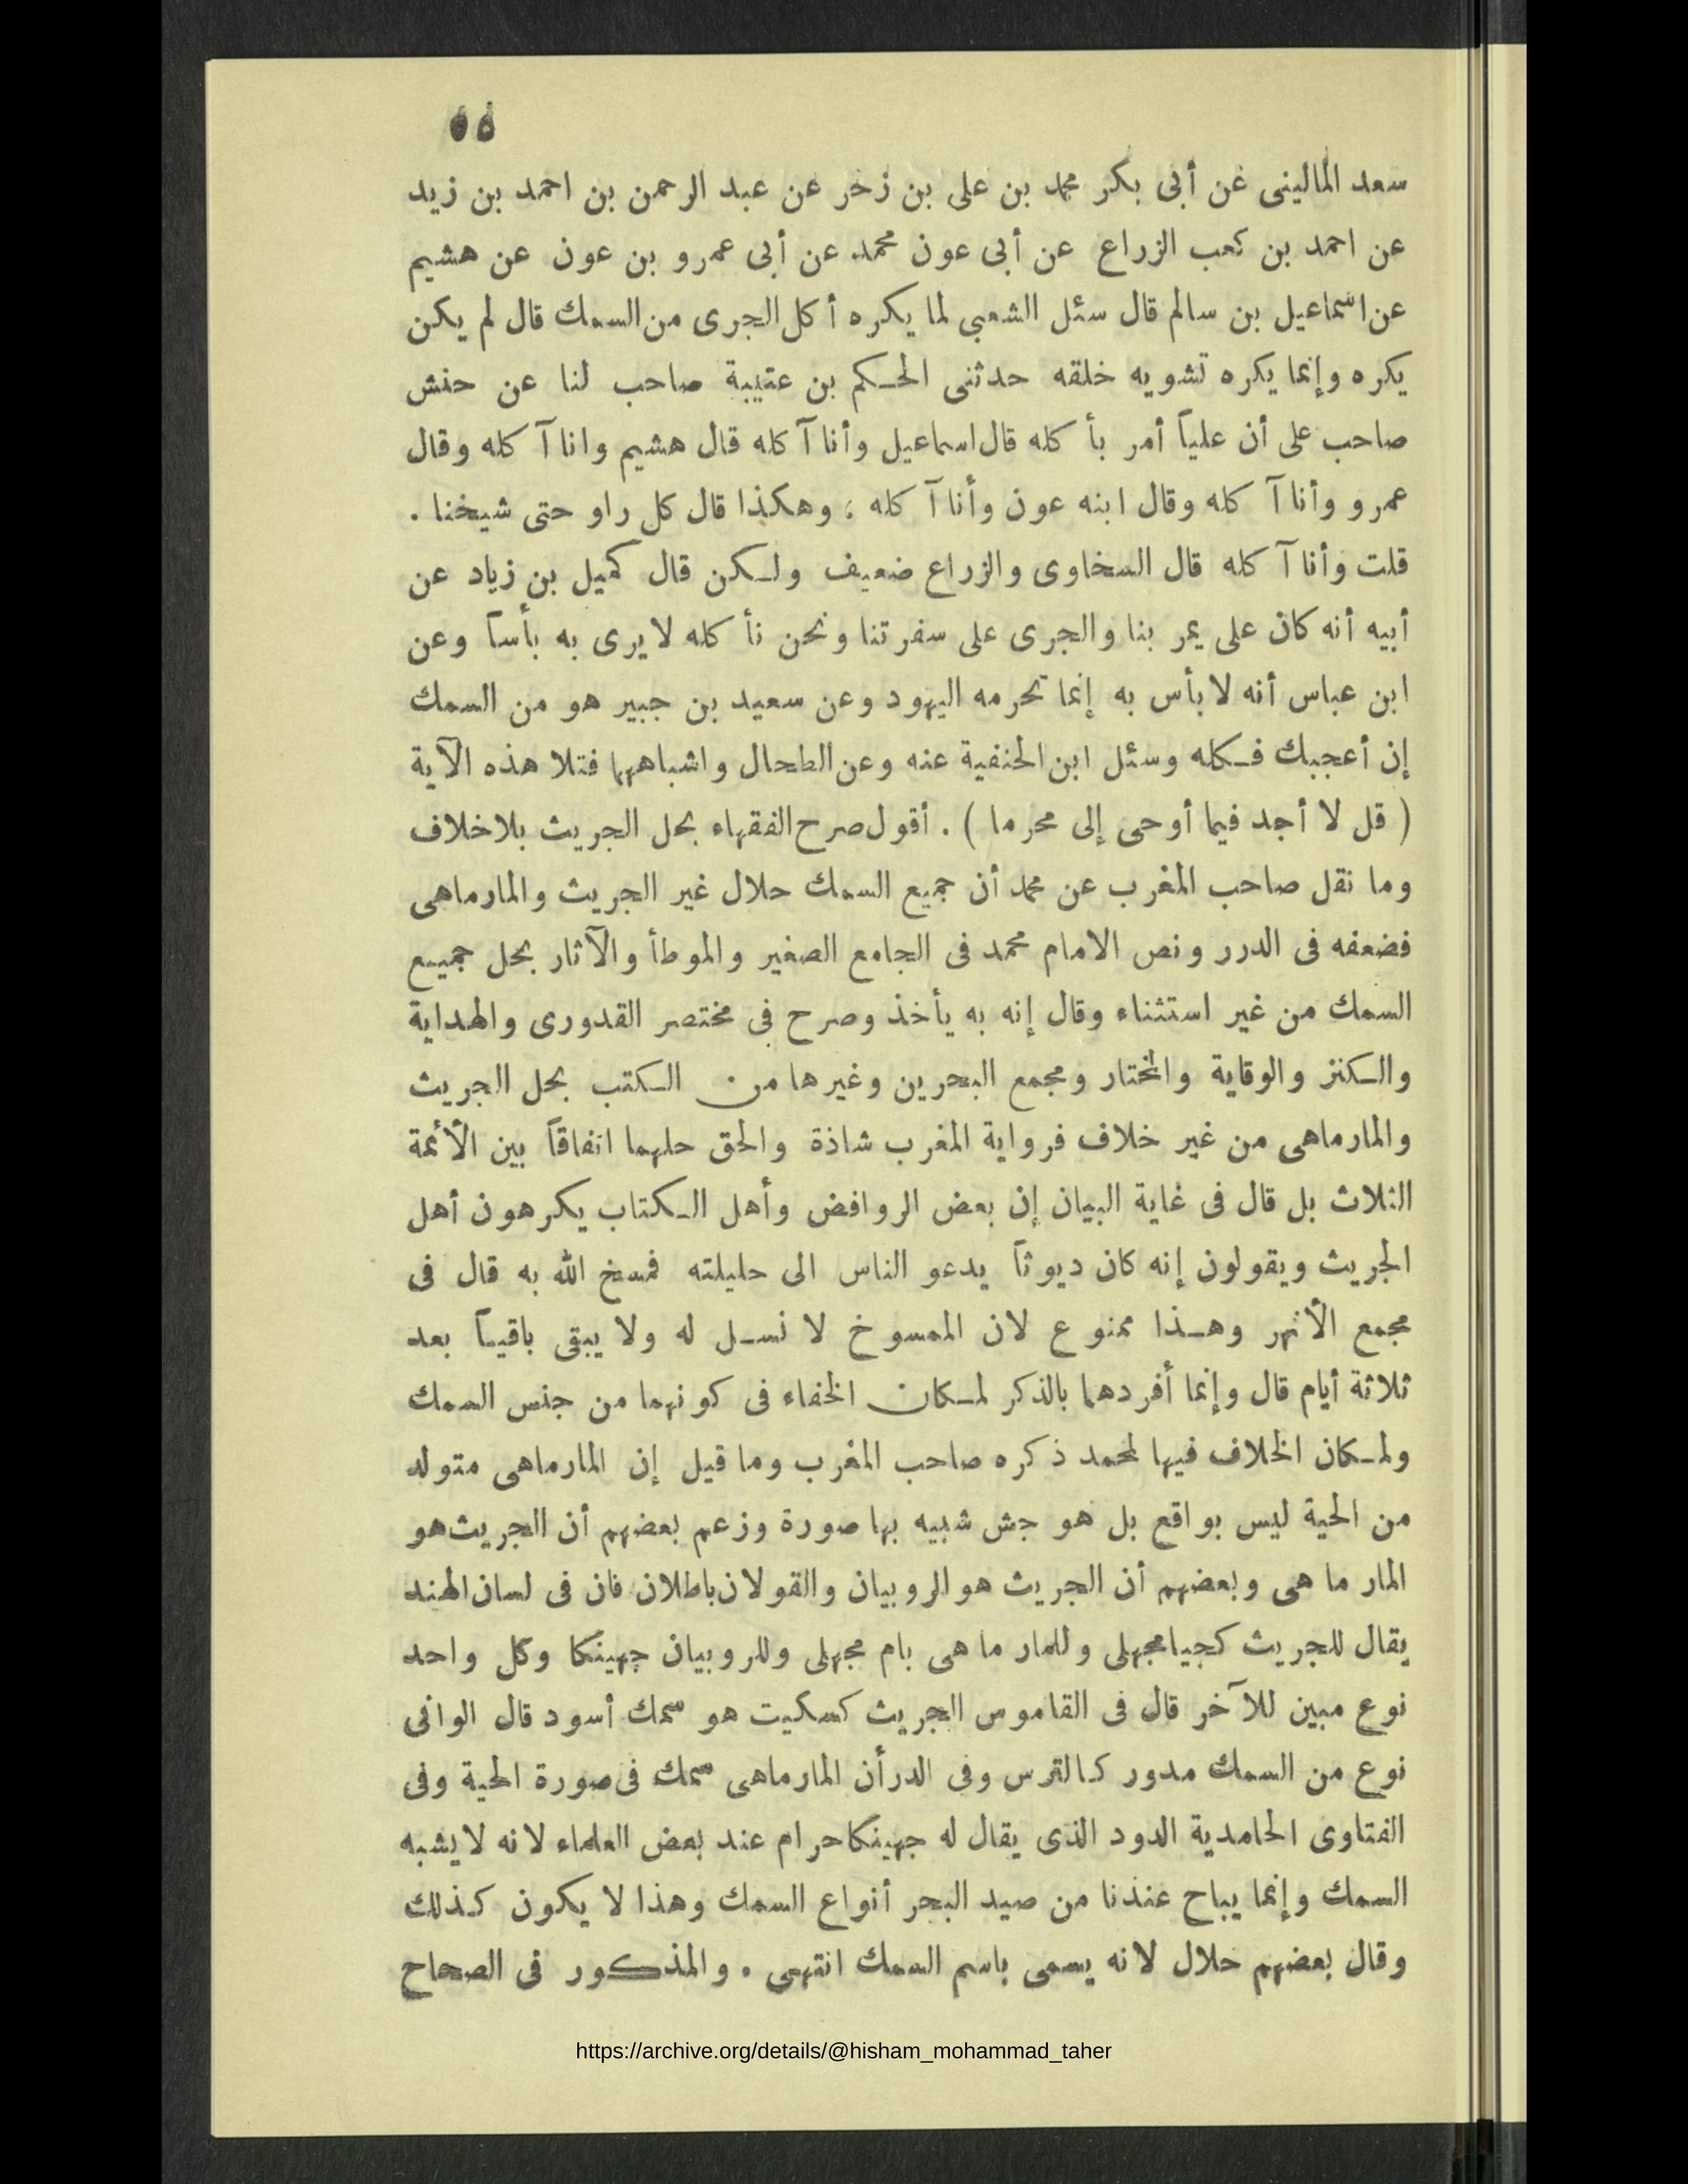 ٥٥
سعد المالينى عن أبى بكر محمد بن على بن زخر عن عبد الرحمن بن احمد بن زيد
عن احمد بن كعب الزراع عن أبى عون محمد عن أبى عمرو بن عون عن هشيم
عن اسماعيل بن سالم قال سئل الشعبى لما يكره أكل الجرى من السمك قال لم يكن
يكره وإنما يكره تشويه خلقه حدثنى الحكم بن عتيبة صاحب لنا عن حنش
صاحب على أن علياً أمر بأكله قال اسماعيل وأنا آكله قال هشيم وانا آكله وقال
عمرو وأنا آكله وقال ابنه عون وأنا آكله ؛ وهكذا قال كل راو حتى شيخنا .
قلت وأنا آكله قال السخاوى والزراع ضعيف ولكن قال كميل بن زياد عن
أبيه أنه كان على يمر بنا والجرى على سفرتنا ونحن نأكله لا يرى به بأساً وعن
ابن عباس أنه لا بأس به إنما تحرمه اليهود وعن سعيد بن جبير هو من السمك
إن أعجبك فكله وسئل ابن الحنفية عنه وعن الطحال واشباههما فتلا هذه الآية
( قل لا أجد فيما أوحى إلى محرما ) . أقول صرح الفقهاء بحل الجريث بلا خلاف
وما نقل صاحب المغرب عن محمد أن جميع السمك حلال غير الجريث والمارماهى
فضعفه فى الدرر ونص الامام محمد فى الجامع الصغير والموطأ والآثار بحل جميع
السمك من غير استثناء وقال إنه به يأخذ وصرح فى مختصر القدورى والهداية
والكنز والوقاية والمختار ومجمع البحرين وغيرها من الكتب بحل الجريث
والمارماهى من غير خلاف فرواية المغرب شاذة والحق حلهما اتفاقاً بين الأئمة
الثلاث بل قال فى غاية البيان إن بعض الروافض وأهل الكتاب يكرهون أهل
الجريث ويقولون إنه كان ديوثاً يدعو الناس الى حليلته فمسخ الله به قال فى
مجمع الأنهر وهذا ممنوع لان الممسوخ لا نسل له ولا يبقى باقياً بعد
ثلاثة أيام قال وإنما أفردهما بالذكر لمكان الخفاء فى كونهما من جنس السمك
ولمكان الخلاف فيها لمحمد ذكره صاحب المغرب وما قيل إن المارماهى متولد
من الحية ليس بواقع بل هو جش شبيه بها صورة وزعم بعضهم أن الجريث هو
المار ما هى وبعضهم أن الجريث هو الروبيان والقولان باطلان فان فى لسان الهند
يقال للجريث كجيا مجهلى وللمار ما هى بام مجهلى وللروبيان جهينكا وكل واحد
نوع مبين للآخر قال فى القاموس الجريث كسكيت هو سمك أسود قال الوافى
نوع من السمك مدور كالترس وفى الدر أن المارماهى سمك فى صورة الحية وفى
الفتاوى الحامدية الدود الذى يقال له جهينكا حرام عند بعض العلماء لانه لا يشبه
السمك وإنما يباح عندنا من صيد البحر أنواع السمك وهذا لا يكون كذلك
وقال بعضهم حلال لانه يسمى باسم السمك انتهى . والمذكور فى الصحاح
https://archive.org/details/@hisham_mohammad_taher